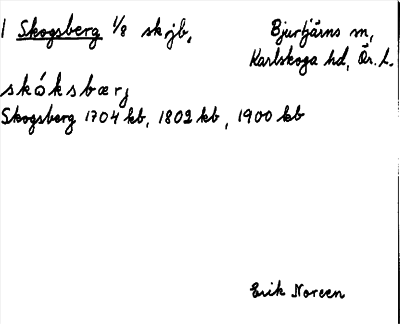 1 Skogsberg 1/8 skjb,
Bjurtjärns sn,
Karlskoga hd, Ör. l.
skóksbærj
Skogsberg 1704 kb, 1802 kb, 1900 kb
Erik Noreen